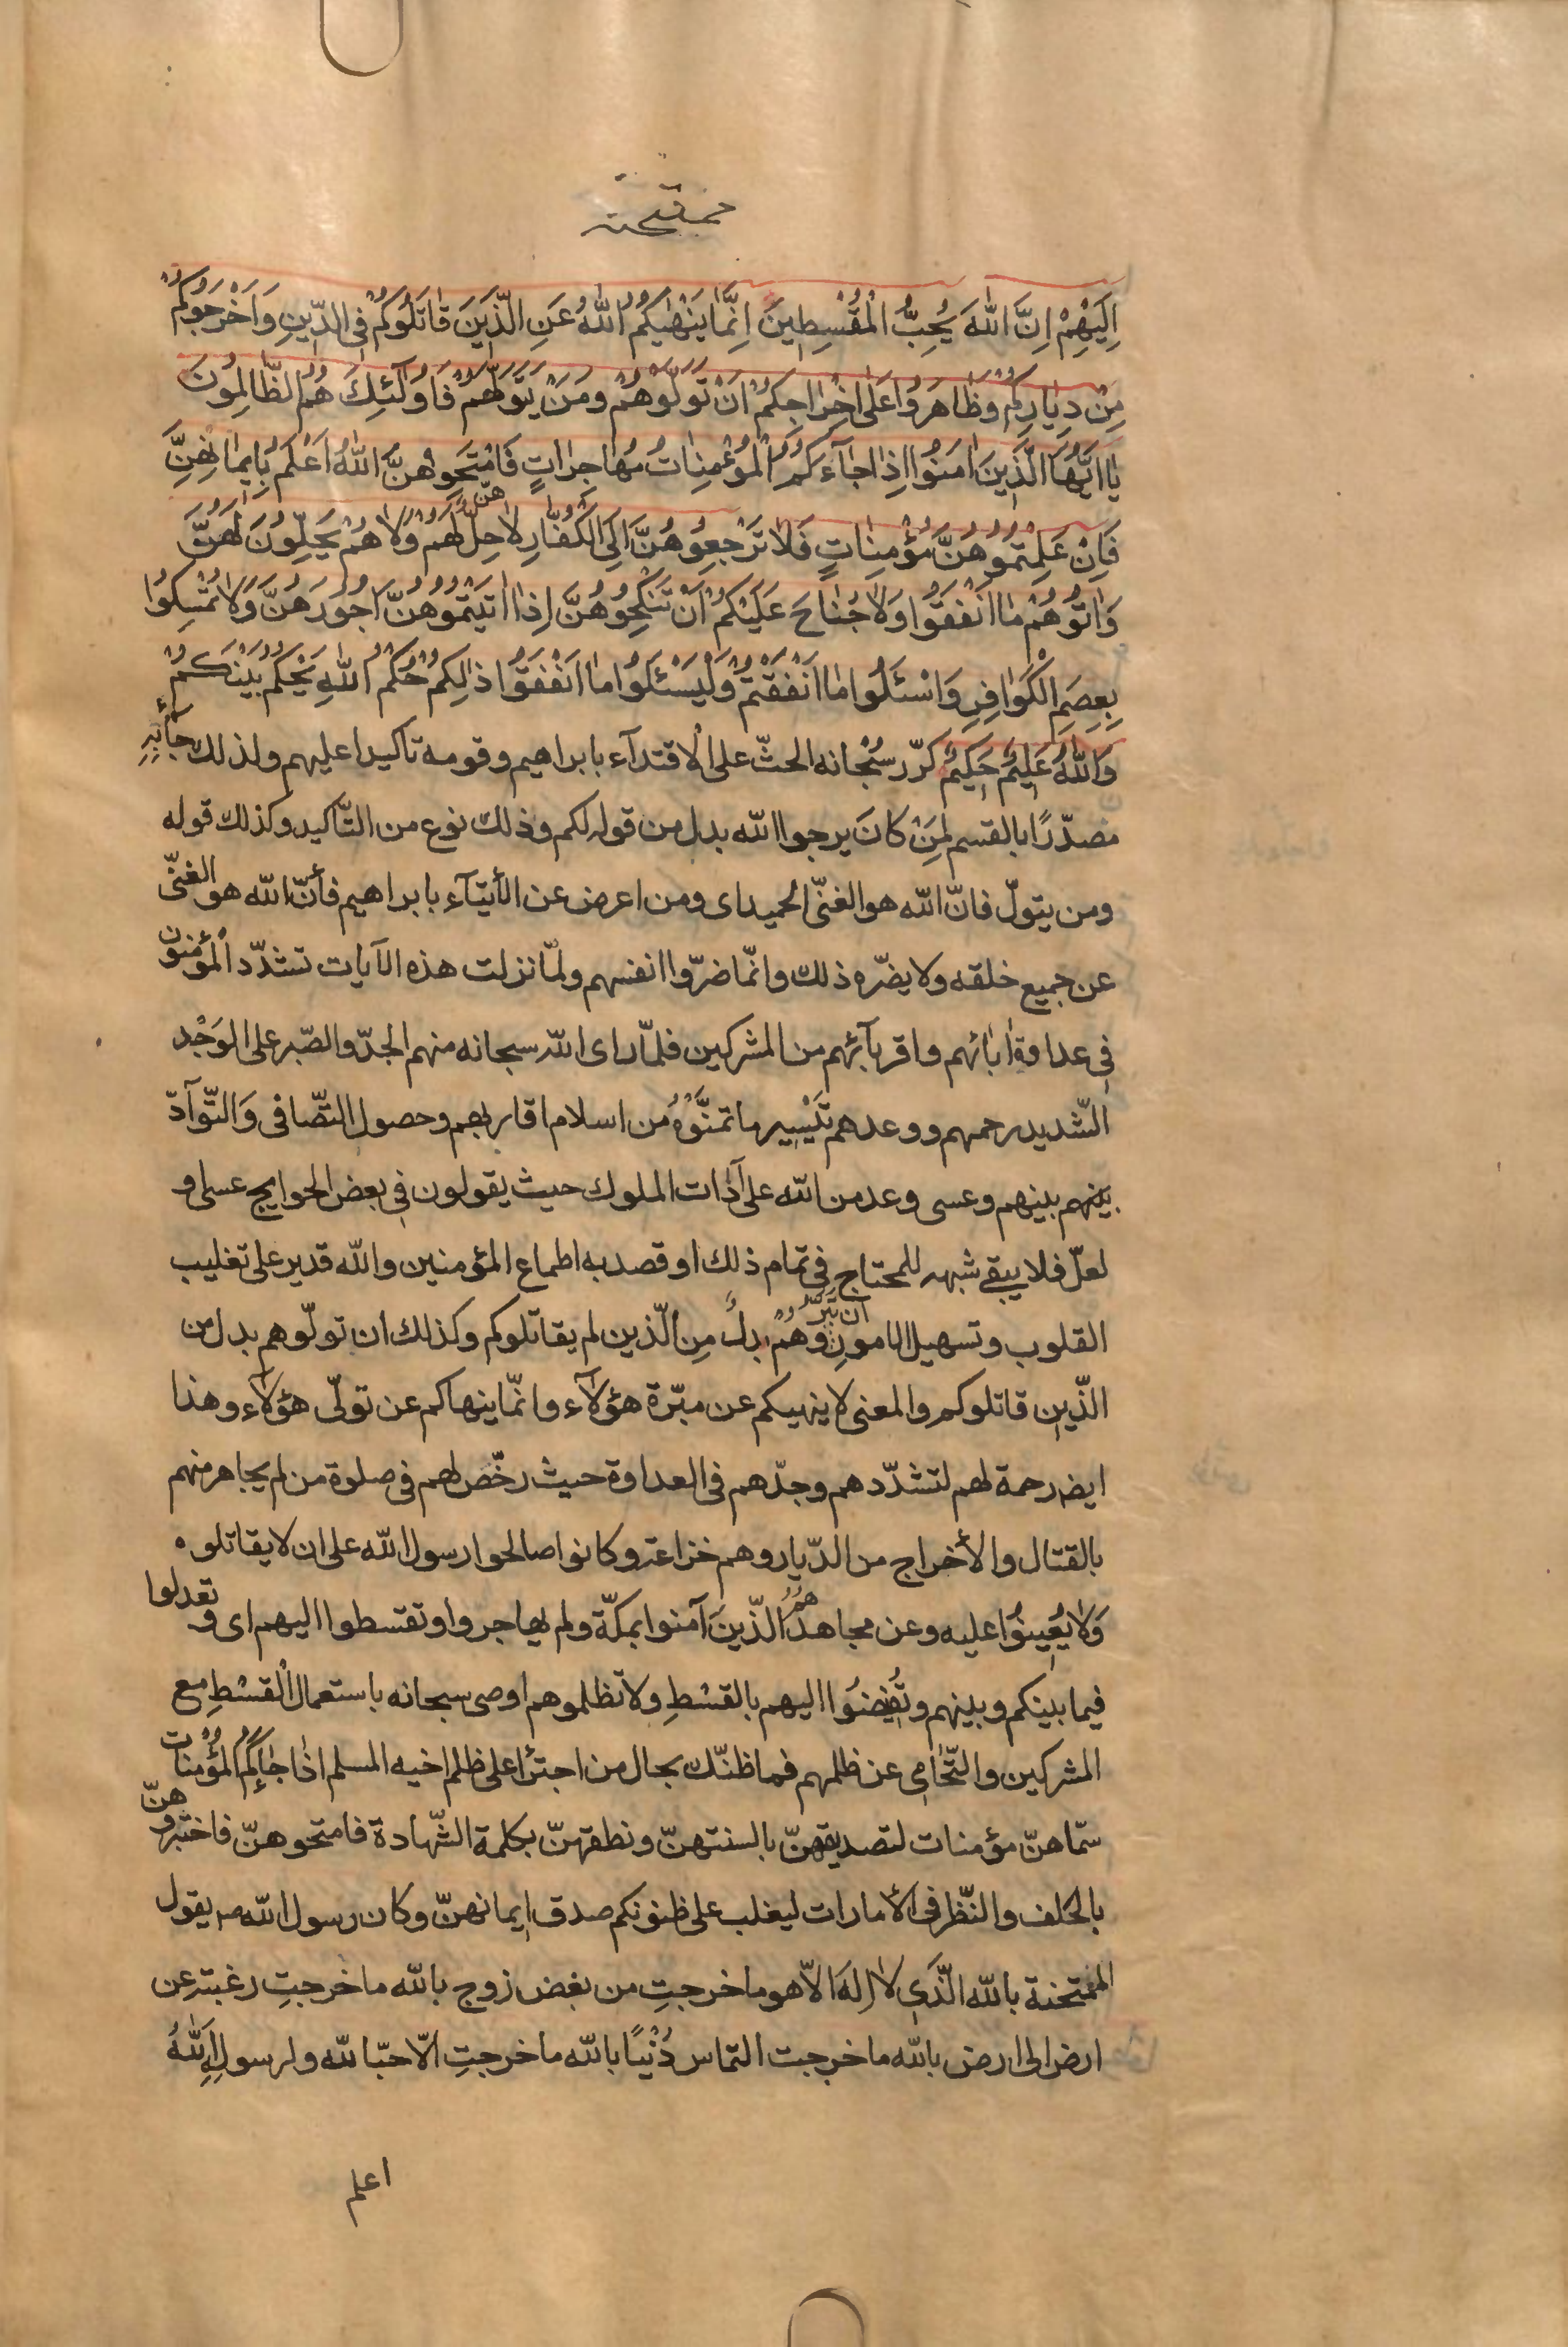 ممتحنه
اِلَيْهِمْ اِنَّ اللّٰهَ يُحِبُّ الْمُقْسِطِينَ اِنَّمَا يَنْهٰيكُمُ اللّٰهُ عَنِ الَّذِينَ قَاتَلُوكُمْ فِي الدِّينِ وَاَخْرَجُوكُمْ
مِنْ دِيَارِكُمْ وَظَاهَرُوا عَلٰى اِخْرَاجِكُمْ اَنْ تَوَلَّوْهُمْ وَمَنْ يَتَوَلَّهُمْ فَاُولٰئِكَ هُمُ الظَّالِمُونَ
يَا اَيُّهَا الَّذِينَ اٰمَنُوا اِذَا جَآءَكُمُ الْمُؤْمِنَاتُ مُهَاجِرَاتٍ فَامْتَحِنُوهُنَّ اللّٰهُ اَعْلَمُ بِاِيمَانِهِنَّ
فَاِنْ عَلِمْتُمُوهُنَّ مُؤْمِنَاتٍ فَلَا تَرْجِعُوهُنَّ اِلَى الْكُفَّارِ لَا هُنَّ حِلٌّ لَهُمْ وَلَا هُمْ يَحِلُّونَ لَهُنَّ
وَاٰتُوهُمْ مَا اَنْفَقُوا وَلَا جُنَاحَ عَلَيْكُمْ اَنْ تَنْكِحُوهُنَّ اِذَا اٰتَيْتُمُوهُنَّ اُجُورَهُنَّ وَلَا تُمْسِكُوا
بِعِصَمِ الْكَوَافِرِ وَاسْئَلُوا مَا اَنْفَقْتُمْ وَلْيَسْئَلُوا مَا اَنْفَقُوا ذٰلِكُمْ حُكْمُ اللّٰهِ يَحْكُمُ بَيْنَكُمْ
وَاللّٰهُ عَلِيمٌ حَكِيمٌ كرّر سُبْحانه الحثّ على الاقتدآء بابراهيم وقومه تاكيدا عليهم ولذلك جآء بِهِ
مصدّرًا بالقسم لِمَنْ كانَ يرجوا الله بدل من قوله لكم وذلك نوع من التّأكيد وكذلك قوله
ومن يتولّ فانّ الله هو الغنّى الحميد اى ومن اعرض عن الأيتآء بابراهيم فأنّ الله هو الغنّى
عن جميع خلقه ولا يضرّه ذلك وانّما ضرّوا انفسهم ولمّا نزلت هذه الآيات تشدّد المؤمنون
فى عداوة اٰبائهم واقربآئهم من المشركين فلمّا راى اللّه سبحانه منهم الجدّ والصّبر على الوَجْد
الشّديد رحمهم ووعدهم تَيْسِير ما تمنَّوْهُ من اسلام اقاربهم وحصول التّصافى وَالتّوآدّ
بينهم بينهم وعسى وعد من الله على آذات الملوك حيث يقولون فى بعض الحوايج عسى و
لعلّ فلا يبقى شبهه للمحتاج فى تمام ذلك او قصد به اطماع المؤمنين والله قدير على تغليب
القلوب وتسهيل الامورِ ان تَبَرُّوهُمْ بدلٌ مِن الّذين لم يقاتلوكم وكذلك ان تولّوهم بدل من
الذّين قاتلوكم والمعنى لا ينهيكم عن مبّرة هؤلآء وانّما ينهاكم عن تولّى هؤلآء وهذا
ايض رحمة لهم لتشدّدهم وجدّهم فى العداوة حيث رخّص لهم فى صلوة من لم يجاهر منهم
بالقتال والأخراج من الدّيار وهم خزاعة وكانوا صالحوا رسول الله على ان لا يقاتلوه
وَلا يُعِينُوا عليه وعن مجاهد هُمُ الذّينَ آمنوا بمكّة ولم يهاجروا وتقسطوا اليهم اى وتعدلوا
فيما بينكم وبينهم وتُفْضُوا اليهم بالقسْطِ ولا تظلموهم اوصى سبحانه باستعمال القسْطِ مع
المشركين والتّحَامِى عن ظلمهم فما ظنّك بحال من اجتَرا على ظلم اخيه المسلم اذا جَاۤءكُمُ المُؤْمِنات
سمّاهنّ مؤمنات لتصديقهنّ بالسنتهنّ ونطقهنّ بكلمة الشّهادة فامتحنوهنّ فاختبروهنّ
بالحلف والنّظر فى الأمارات ليغلب على ظنونكم صدق ايمانهنّ وكان رسول الله ص يقول
الممتحنة بالله الذّى لا اِلٰهَ الاّ هو ما خرجتِ من بغض زوج بالله ما خرجتِ رغبة عن
ارض الى ارض بالله ما خرجت التماس دُنْيًا بالله ما خرجتِ الاّ حبّا لله ولرسولِهِ اللّٰهُ
اعلم